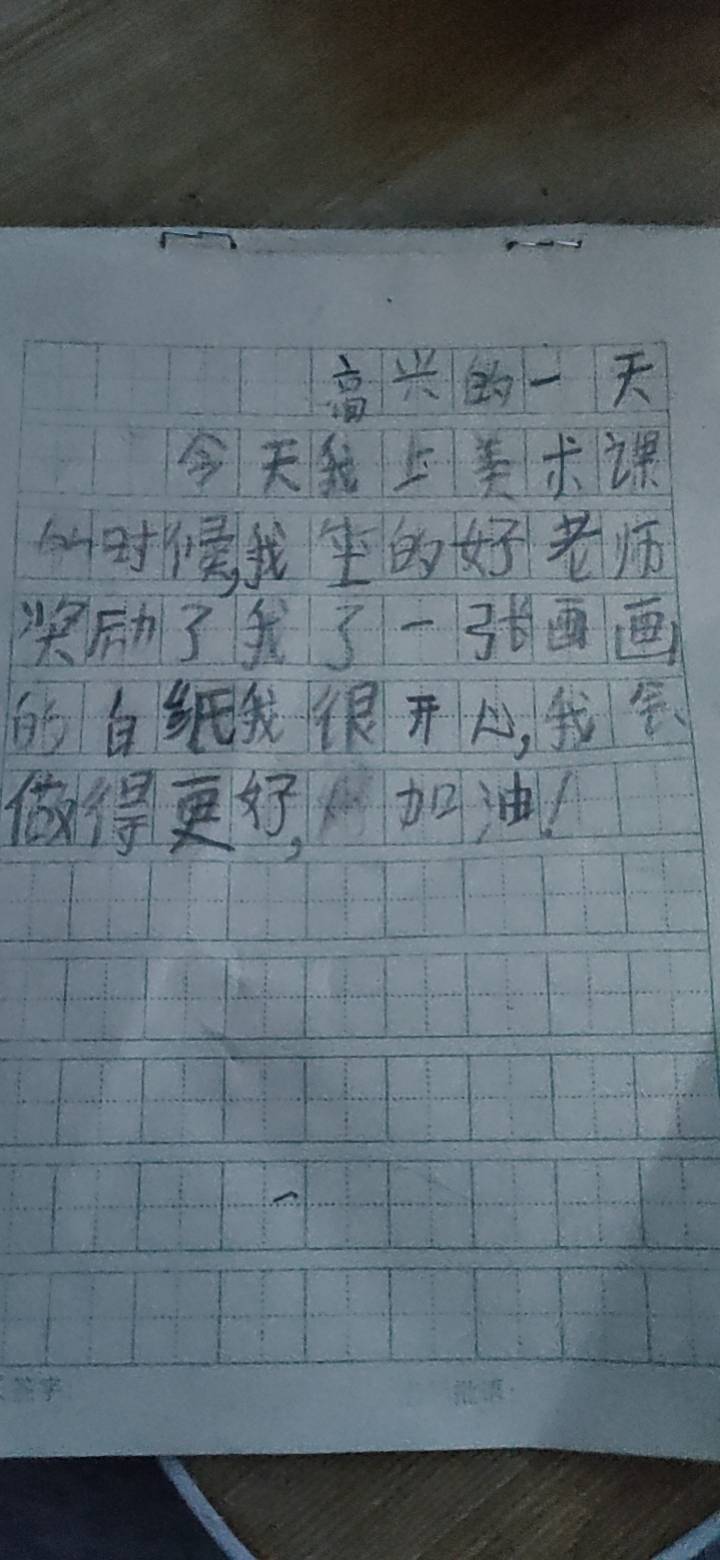 高兴的一天
今天我上美术课
的时候,我坐的好老师
奖励了我了一张画画
的白纸我很开心,我会
做得更好,加油!